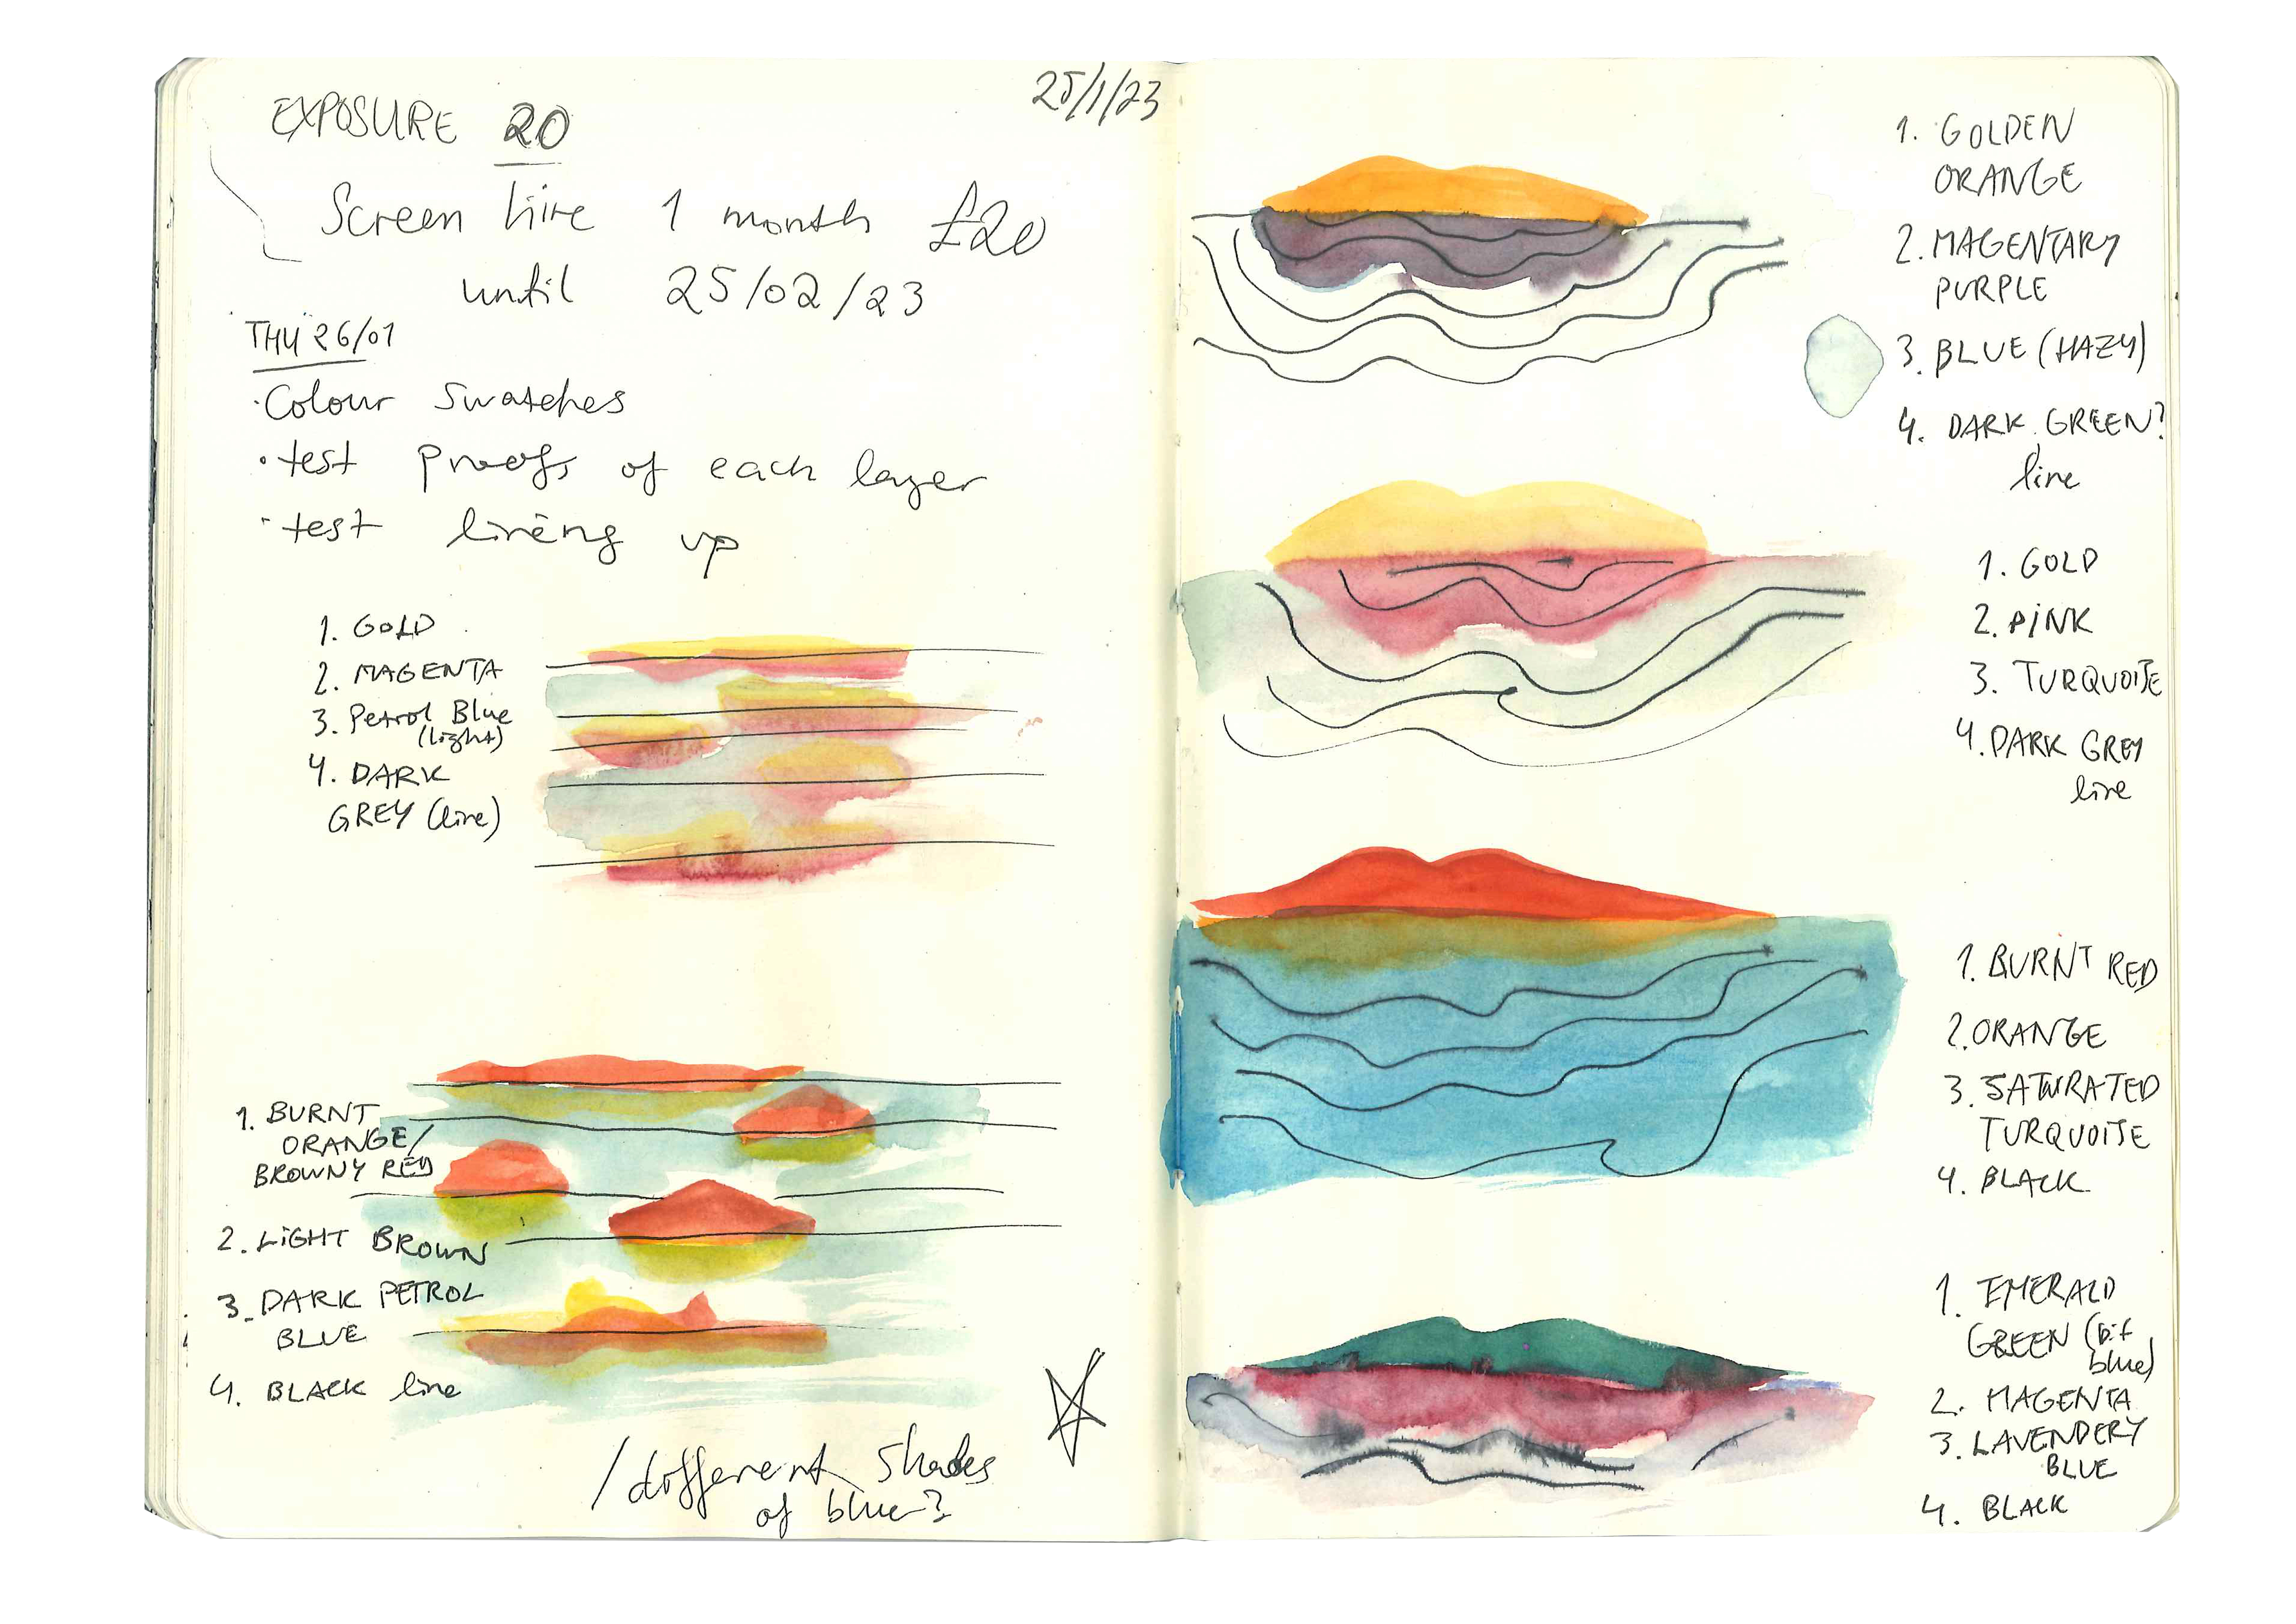 25/1/23
EXPOSURE 20
Screen hire 1 month £20
until 25/02/23
THU 26/01
·Colour swatches
·test proofs of each layer
·test lineing up
1. GOLD
2. MAGENTA
3. Petrol Blue
(light)
4. DARK
GREY (line)
1. BURNT
ORANGE/
BROWNY RED
2. LIGHT BROWN
3. DARK PETROL
BLUE
4. BLACK line
/different shades
of blue?
1. GOLDEN
ORANGE
2. MAGENTARY
PURPLE
3. BLUE (HAZY)
4. DARK GREEN?
line
1. GOLD
2. PINK
3. TURQUOISE
4. DARK GREY
line
1. BURNT RED
2. ORANGE
3. SATURATED
TURQUOISE
4. BLACK
1. EMERALD
GREEN (bit
blue)
2. MAGENTA
3. LAVENDERY
BLUE
4. BLACK